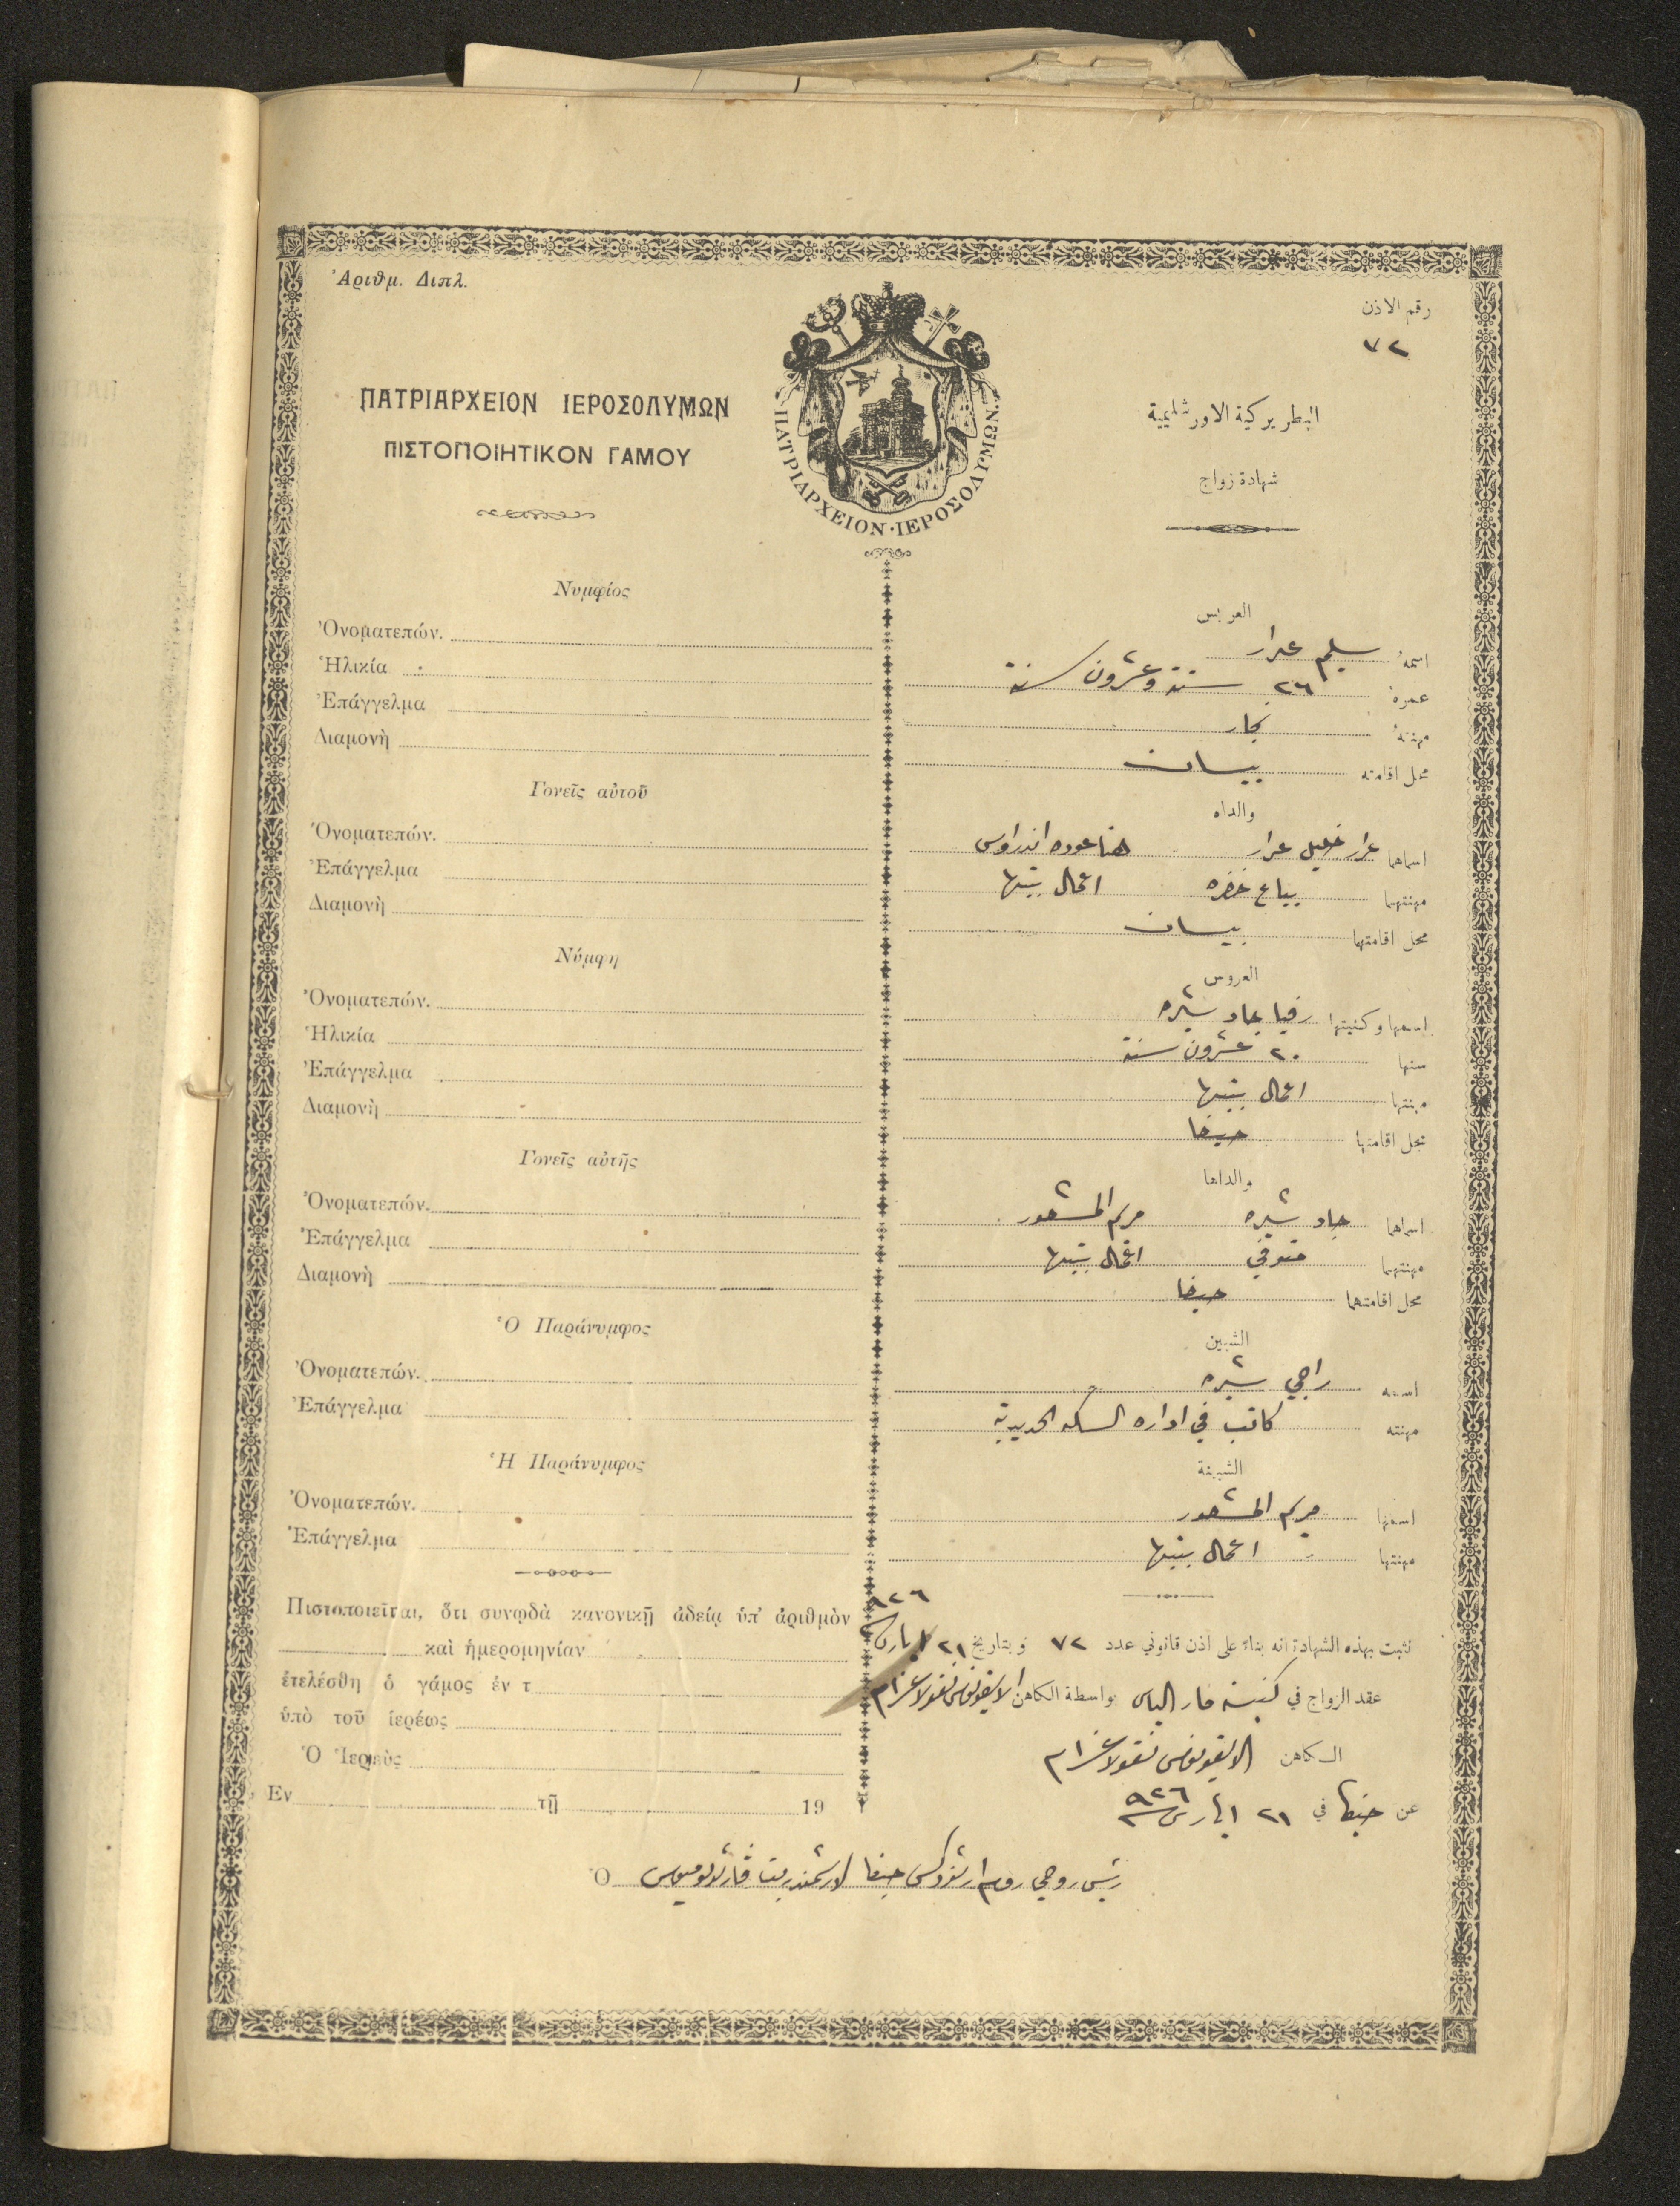 Ἀριθμ. Διπλ.
رقم الاذن
٧٢
ΠΑΤΡΙΑΡΧΕΙΟΝ ΙΕΡΟΣΟΛΥΜΩΝ
ΠΙΣΤΟΠΟΙΗΤΙΚΟΝ ΓΑΜΟΥ
ΠΑΤΡΙΑΡΧΕΙΟΝ·ΙΕΡΟΣΟΛΥΜΩΝ
البطريركية الاورشليمية
شهادة زواج
Νυμφίος
Ὀνοματεπών.
Ἡλικία
Ἐπάγγελμα
Διαμονὴ
Γονεῖς αὐτοῦ
Ὀνοματεπών.
Ἐπάγγελμα
Διαμονὴ
Νύμφη
Ὀνοματεπών.
Ἡλικία
Ἐπάγγελμα
Διαμονὴ
Γονεῖς αὐτῆς
Ὀνοματεπών.
Ἐπάγγελμα
Διαμονὴ
Ὁ Παράνυμφος
Ὀνοματεπών.
Ἐπάγγελμα
Ἡ Παράνυμφος
Ὀνοματεπών.
Ἐπάγγελμα
Πιστοποιεῖται, ὅτι συνῳδὰ κανονικῇ ἀδείᾳ ὑπ' ἀριθμὸν
καὶ ἡμερομηνίαν
ἐτελέσθη ὁ γάμος ἐν τ
ὑπὸ τοῦ ἱερέως
Ὁ Ἱερεὺς
Ἐν τῇ 19
العريس
اسمهُ سليم عرار
عمرهُ ٢٦ ستة وعشرون سنة
مهنتهُ نجار
محل اقامته بيسان
والداه
اسماهما عرار خليل عرار هنا عوده اندراوس
مهنتهما بياع خضره اعمال بيتها
محل اقامتهما بيسان
العروس
اسمها وكنيتها جاد شبره
سنها ٢٠ عشرون سنة
مهنتها اعمال بيتها
محل اقامتها حيفا
والداها
اسماهما جاد شبره مريم
مهنتهما متوفي اعمال بيتها
محل اقامتهما حيفا
الشبين
اسمه راجي شبره
مهنته كاتب في اداره السكه الحديدية
الشبينة
اسمها مريم
مهنتها اعمال بيتها
نثبت بهذه الشهادة انه بناءً على اذن قانوني عدد ٧٢ وبتاريخ ٢١ ايار ٩٢٦
عقد الزواج في كنيسة مار الياس بواسطة الكاهن الايقونوس نقولا
الكاهن الايقونوس نقولا
عن حيفا في ٢١ ايار ٩٢٦
Ὁ رئيس روحي روم ارثوذكس حيفا